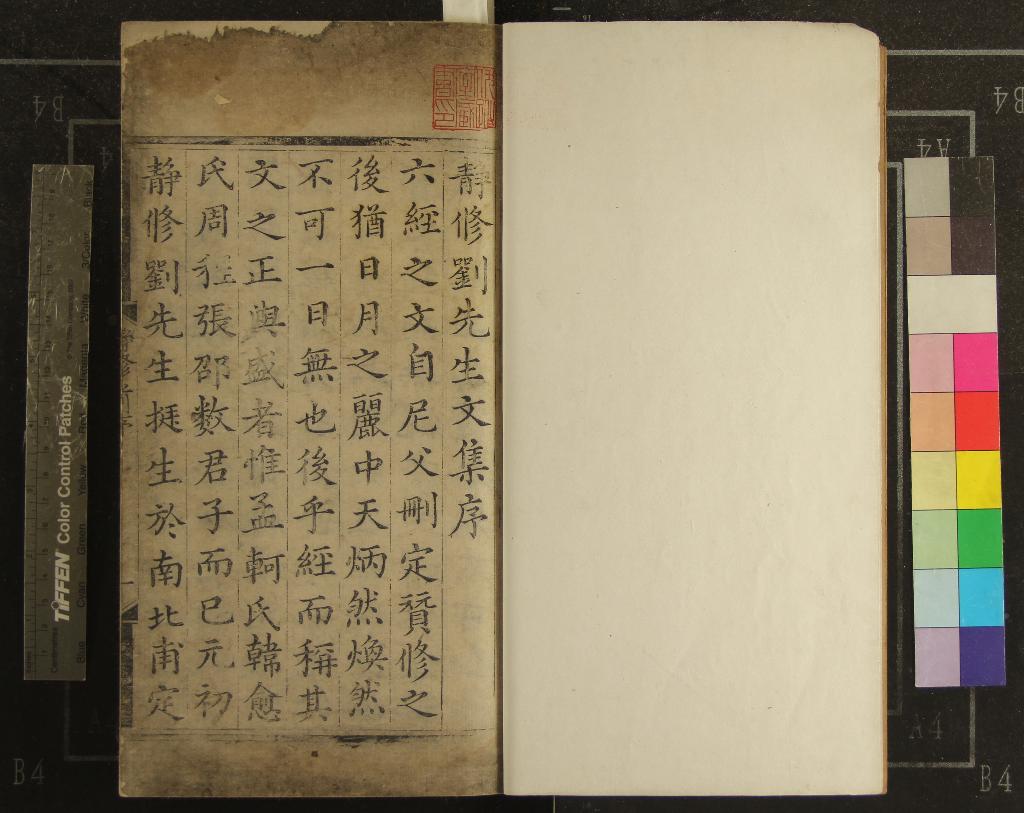 靜修劉先生文集序
六經之文自尼父刪定贊修之
後猶日月之麗中天炳然煥然
不可一日無也後乎經而稱其
文之正與盛者惟孟軻氏韓愈
氏周程張邵數君子而已元初
靜修劉先生挺生於南北甫定
TIFFEN Color Control Patches
B4
B4
A4
A4
B4
B4